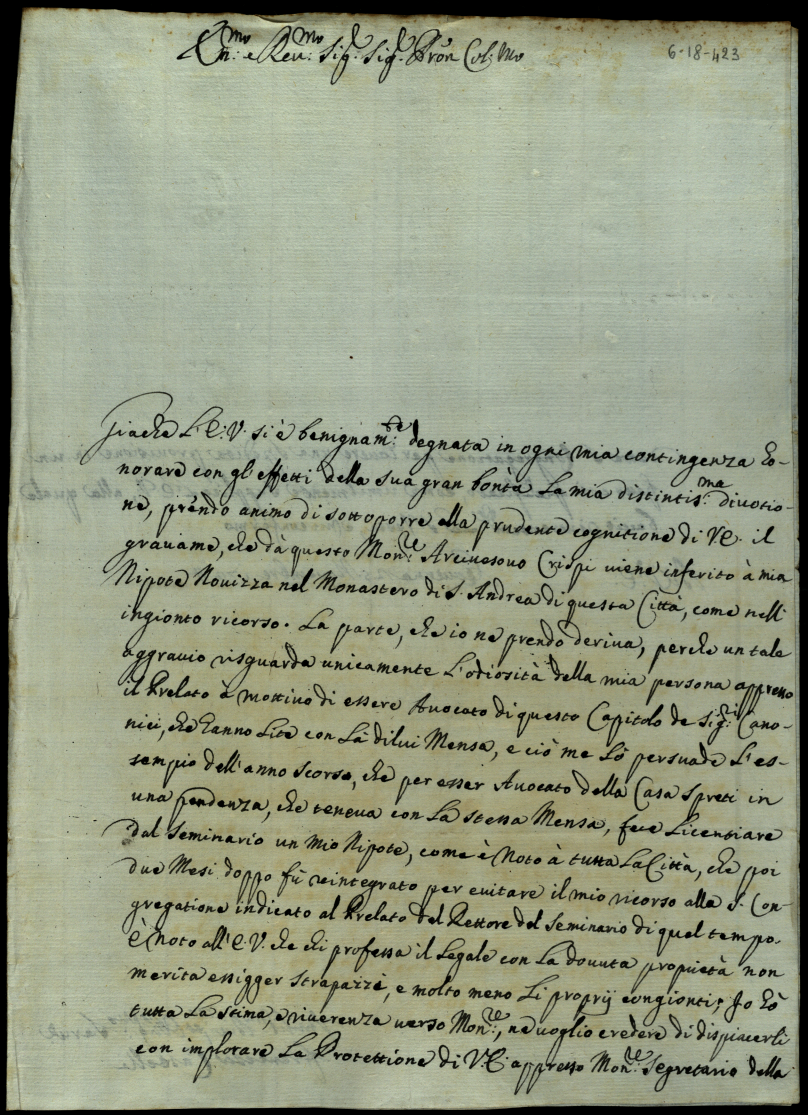 Em:mo e Reu:mo Sig:r Sig:r Pron Col:mo
6-18-423
Giache L'E:V. si è benignam:te degnata in ogni mia contingenza ho-
norare con gl'effetti della sua gran bontà La mia distintis:ma divotio-
ne, prendo animo di sottoporre alla prudente cognitione di VE. il
grauame, che dà questo Mon:re Arciuesouo Crispi uiene inferito à mia
Nipote Nouizza nel Monastero di S. Andrea di questa Città, come nell'
ingionto ricorso. La parte, che io ne prendo deriua, perche un tale
aggrauio risguarda unicamente L'odiosità della mia persona appresso
il Prelato à mottiuo di essere Auocato di questo Capitolo de Sig:ri Cano-
nici, che hanno Lite con La dilui Mensa, e ciò me Lo persuade L'es-
sempio dell'anno scorso, che per esser Auocato della Casa Spreti in
una pendenza, che teneua con La stessa Mensa, fece Licentiare
dal Seminario un Mio Nipote, come è Noto à tutta La Città, che poi
due Mesi doppo fù reintegrato per euitare il mio ricorso alla S. Con-
gregatione indicato al Prelato del Rettore del Seminario di quel tempo.
È Noto all'E.V. che chi professa il Legale con La douuta propietà non
merita essigger strapazzi, e molto meno Li proprij congionti; Io hò
tutta La stima, e riuerenza uerso Mon:re, ne uoglio credere di dispiacerli
con implorare La Protettione di V.E. appresso Mon:re Segretario della